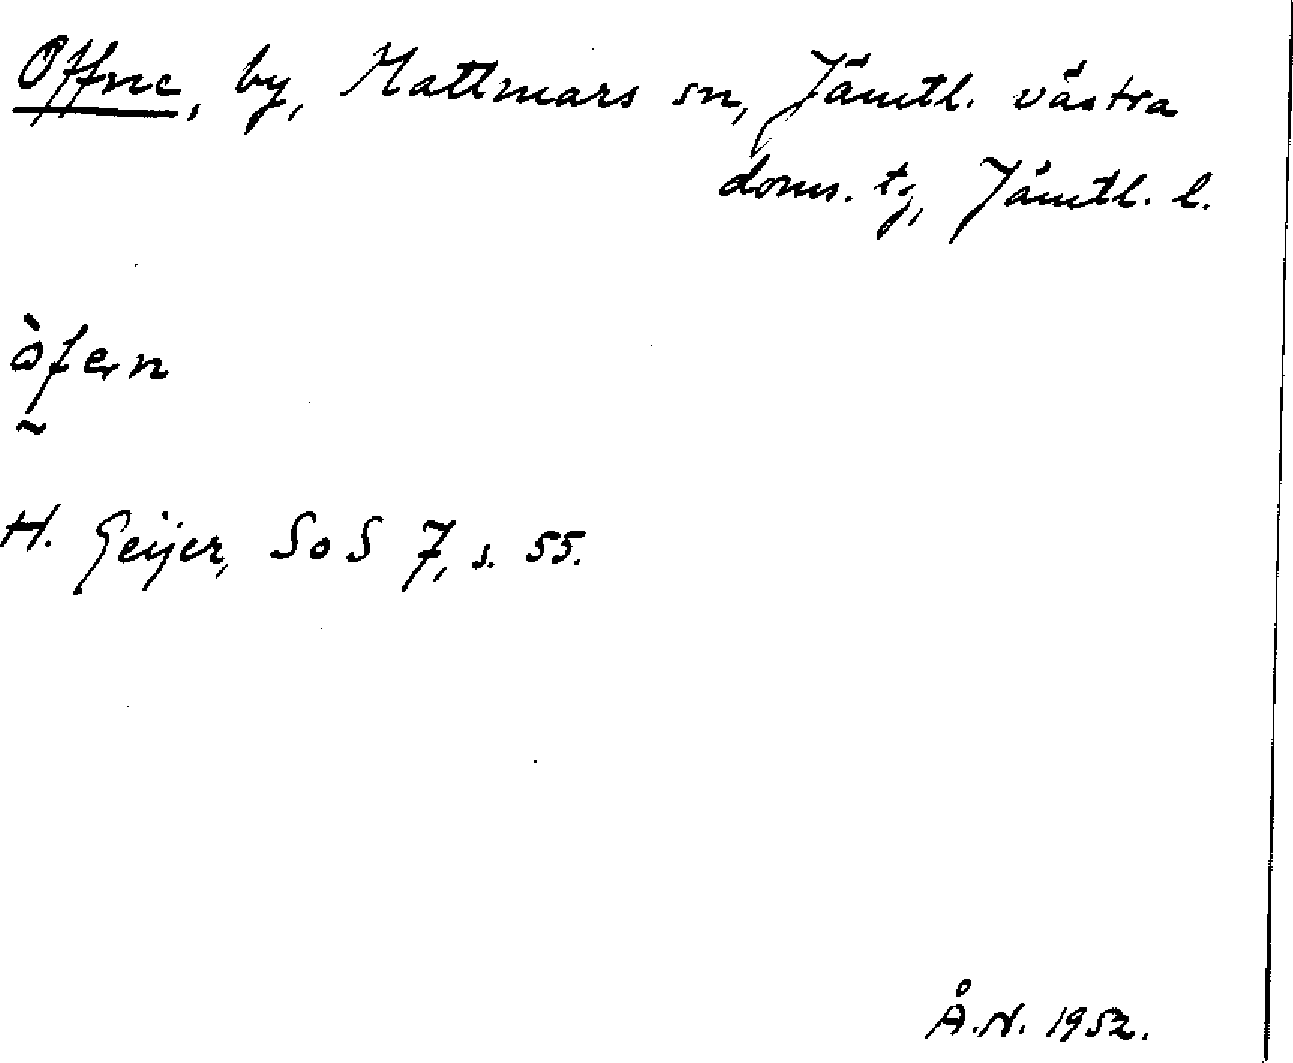 Offne, by, Mattmars sn, Jämtl. västra
doms. tg, Jämtl. l.
òfern
H. Geijer, SoS 7, s. 55.
Å.N. 1952.